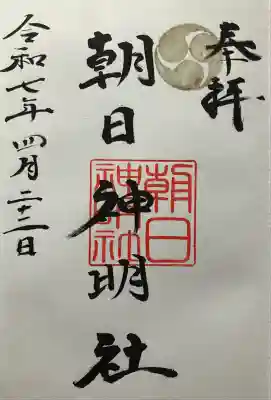 奉拝
朝日神明社
朝日
神社
令和七年四月二十三日